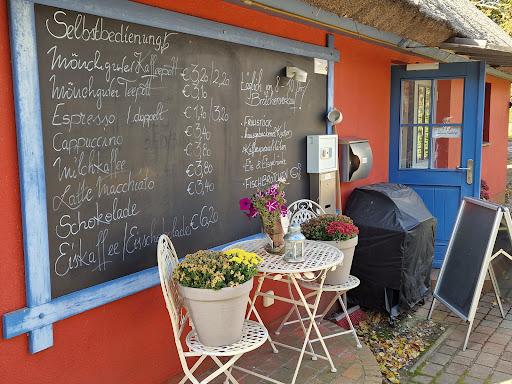 Selbstbedienung!
Mönchguter Kaffeepott € 3,20 /2,20
Mönchguter Teepott € 3,10
Espresso / doppelt € 1,90 / 3,20
Cappuccino € 3,40
Milchkaffee € 3,90
Latte Macchiato € 3,40
Schokolade € 3,40
Eiskaffee/Eisschokolade € 6,20
Täglich von 8-10 Uhr
Brötchenverkauf
Hausgebackener Kuchen
Eis & Eisgetränke
Fischbrötchen